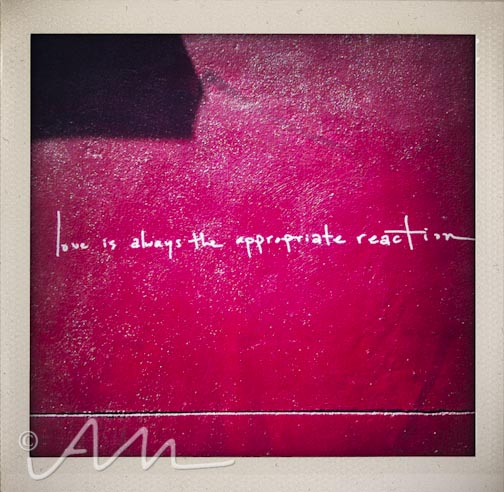 love is always the appropriate reaction
© AM